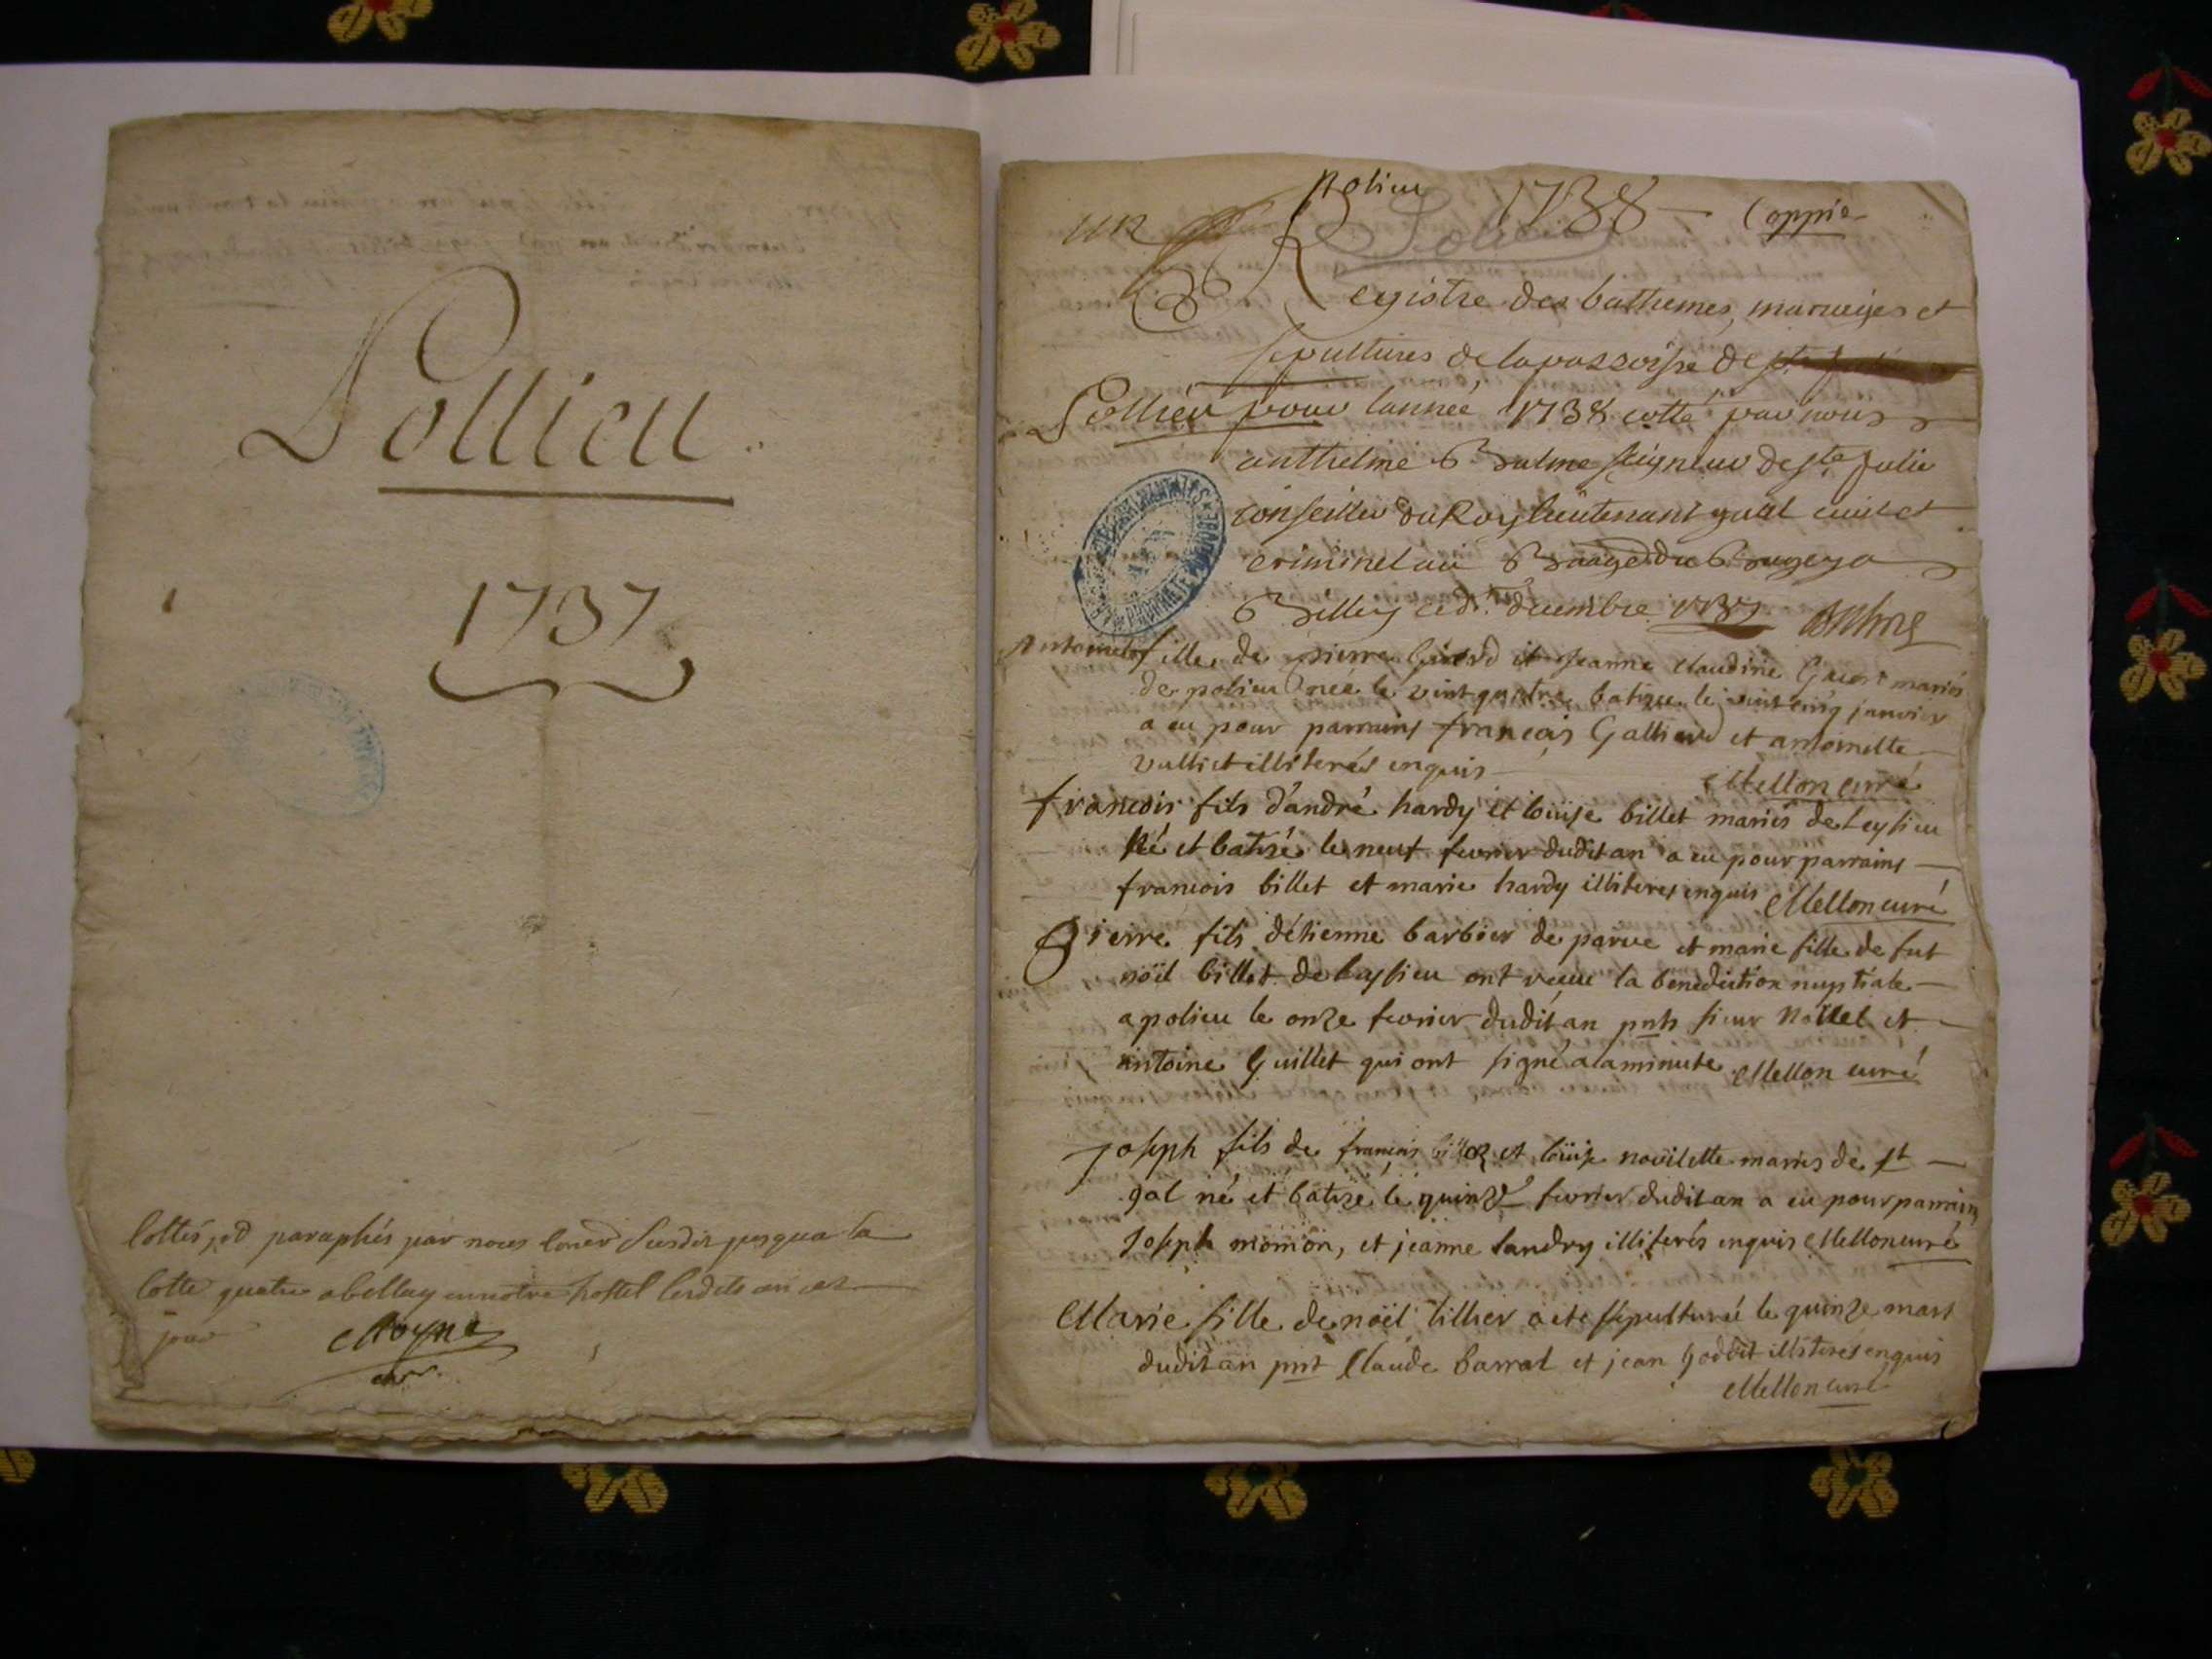 Pollieu
1737
Cottés et paraphés par nous susdit jusqua la
cotte quatre a bellay en notre hostel lesdits an et
jour Moyne
un polieu 1738 Coppie
Polieu
Registre des battemes, mariages et
sepultures de la parroisse de ste
Pollieu pour lannée 1738 cotté par nous
anthelme Balme seigneur de ste Julie
conseiller du Roy lieutenant gnal civil et
criminel au Bailliage du Bugey a
Belley ce dec. decembre 1737 Balme
Antoinette fille de pierre et jeanne claudine mariés
de polieu née le vint quatre batisée le vint cinq janvier
a eu pour parrains francois Galliard et antoinette
illiterés enquis
Mellon curé
francois fils d'andré hardy et loüise billet mariés de Leysieu
né et batisé le neuf fevrier dudit an a eu pour parrains
francois billet et marie hardy illiteres enquis Mellon curé
Pierre fils détienne barbier de parve et marie fille de fut
noël billet de leysieu ont receue la benediction nuptiale
a polieu le onze fevrier dudit an pnts sieur et
antoine Guillet qui ont signé a la minute Mellon curé
joseph fils de francois et loüise mariés de st
gal né et batisé le quinze fevrier dudit an a eu pour parrains
Joseph momon, et jeanne landry illiterés enquis Mellon curé
Marie fille de noël tillier a eté sepulturée le quinze mars
dudit an pnt Claude barral et jean illiterés enquis
Mellon curé